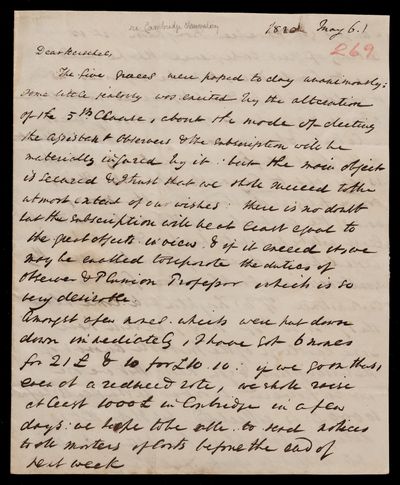 re Cambridge Observatory
1820 May 6.1
269
Dear Herschel,
The five graces were passed to day unanimously:
some little jealousy was excited by the alteration
of the 5th Clause, about the mode of electing
the assistant Observers & the subscription will be
materially injured by it: but the main object
is secured & I trust that we shall succeed to the
utmost extent of our wishes: there is no doubt
but the subscription will be at least equal to
the great objects in view. & if it exceed it, we
may be enabled to separate the duties of
Observer & Plumian Professor which is so
very desirable
Amongst a few names which were put down
down immediately, I have got 6 names
for 21£ & 10 for £10.10: if we go on thus,
even at a reduced rate, we shall raise
at least 1000£ in Cambridge in a few
days: we hope to be able to send notices
to all masters of Arts before the end of
next week